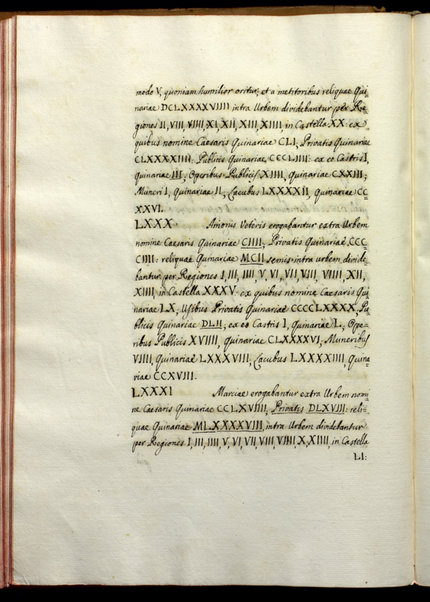 modo V, quoniam humilior oritur, et a metitoribus reliquae Qui-
nariae DCLXXXXVIIII intra Urbem dividebantur per Re-
giones II, VIII, VIIII, XI, XII, XIII, XIIII, in Castella XX: ex
quibus nomine Caesaris Quinariae CLI; Privatis Quinariae
CLXXXXIIII; Publicis Quinariae CCCLIIII: ex eo Castris I,
quinariae III; Operibus Publicis XIIII, Quinariae CXXIII;
Muneri I, Quinariae II; Lacubus LXXXXII, Quinariae CC-
XXVI.
LXXX. Anionis Veteris erogabantur extra Urbem
nomine Caesaris Quinariae CIIII; Privatis Quinariae CCC-
CIIII: reliquae Quinariae MCII semis intra urbem divide-
bantur per Regiones I, III, IIII, V, VI, VII, VIII, VIIII, XII,
XIIII in Castella XXXV ex quibus nomine Caesaris Qui-
nariae LX; Usibus Privatis Quinariae CCCCLXXXX, Pu-
blicis Quinariae DLII; ex eo Castris I, Quinariae L; Ope-
ribus Publicis XVIIII, Quinariae CLXXXXVI, Muneribus
VIIII, Quinariae LXXXVIII, Lacubus LXXXXIIII, Quina-
riae CCXVIII.
LXXXI Marciae erogabantur extra Urbem nomi-
ne Caesaris Quinariae CCLXVIIII, Privatis DLXVIII: reli-
quae Quinariae MLXXXXVIII, intra Urbem dividebantur
per Regiones I, III, IIII, V, VI, VII, VIII, VIIII, X, XIIII, in Castella
LI: